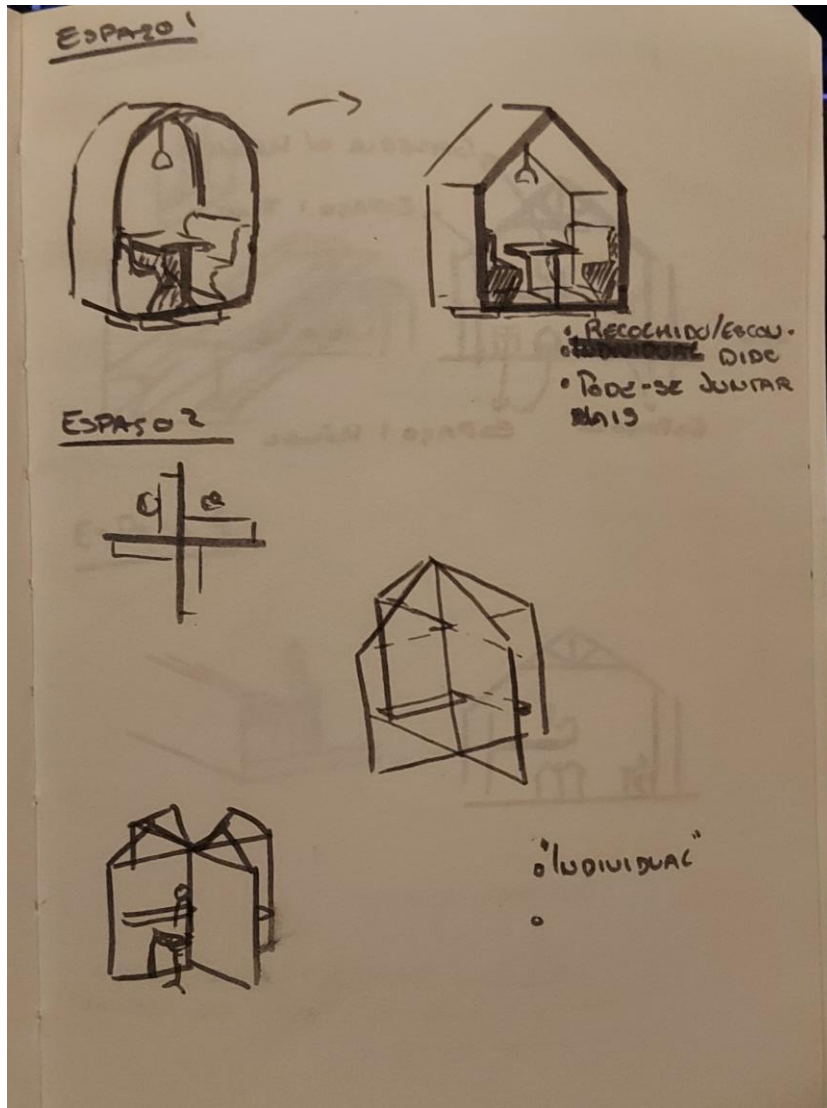 ESPAÇO 1
• RECOLHIDO/ESCON-
• INDIVIDUAL DIDO
• PODE-SE JUNTAR
MAIS
ESPAÇO 2
• "INDIVIDUAL"
•